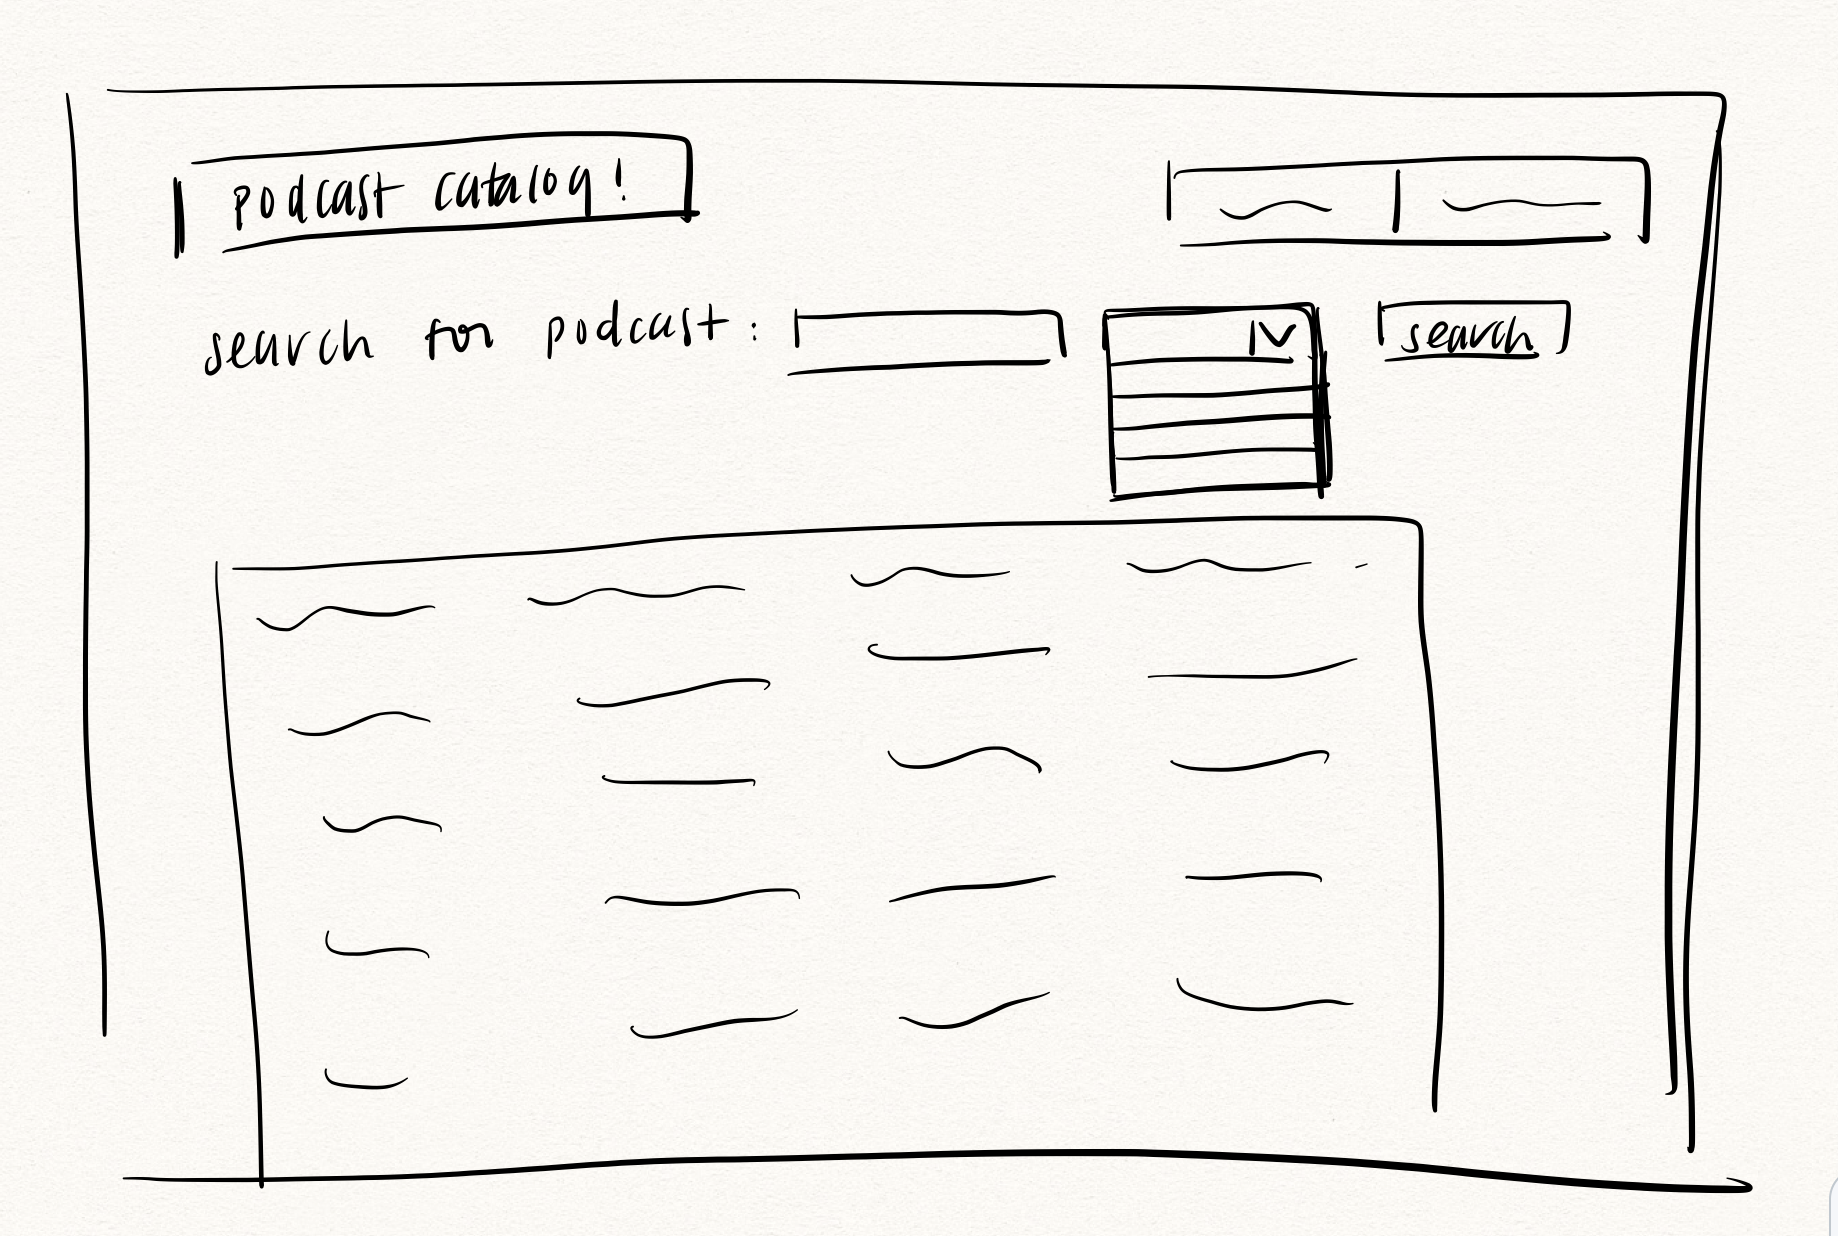 podcast catalog!
search for podcast:
search